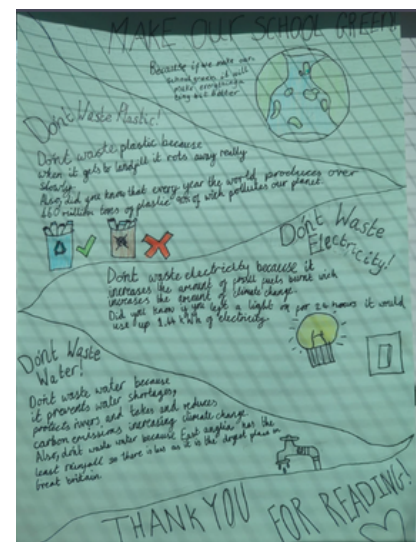 MAKE OUR SCHOOL GREEN!
Because if we make our
school green it will
make everything a
tiny bit better.
Don't Waste Plastic!
Don't waste plastic because
when it gets to landfill it rots away really
slowly.
Also, did you know that every year the world produces over
460 million tons of plastic 90% of wich pollutes our planet.
Don't Waste
Electricity!
Don't waste electricity because it
increases the amount of fossil fuels burnt wich
increases the amount of climate change.
Did you know if you kept a light on for 24 hours it would
use up 1.44 kWh of electricity.
Don't Waste
Water!
Don't waste water because
it prevents water shortages,
protects rivers and lakes and reduces
carbon emissions increasing climate change.
Also, don't waste water because East anglia has the
least rainfall so there is less as it is the dryest place in
Great britain.
THANK YOU FOR READING!